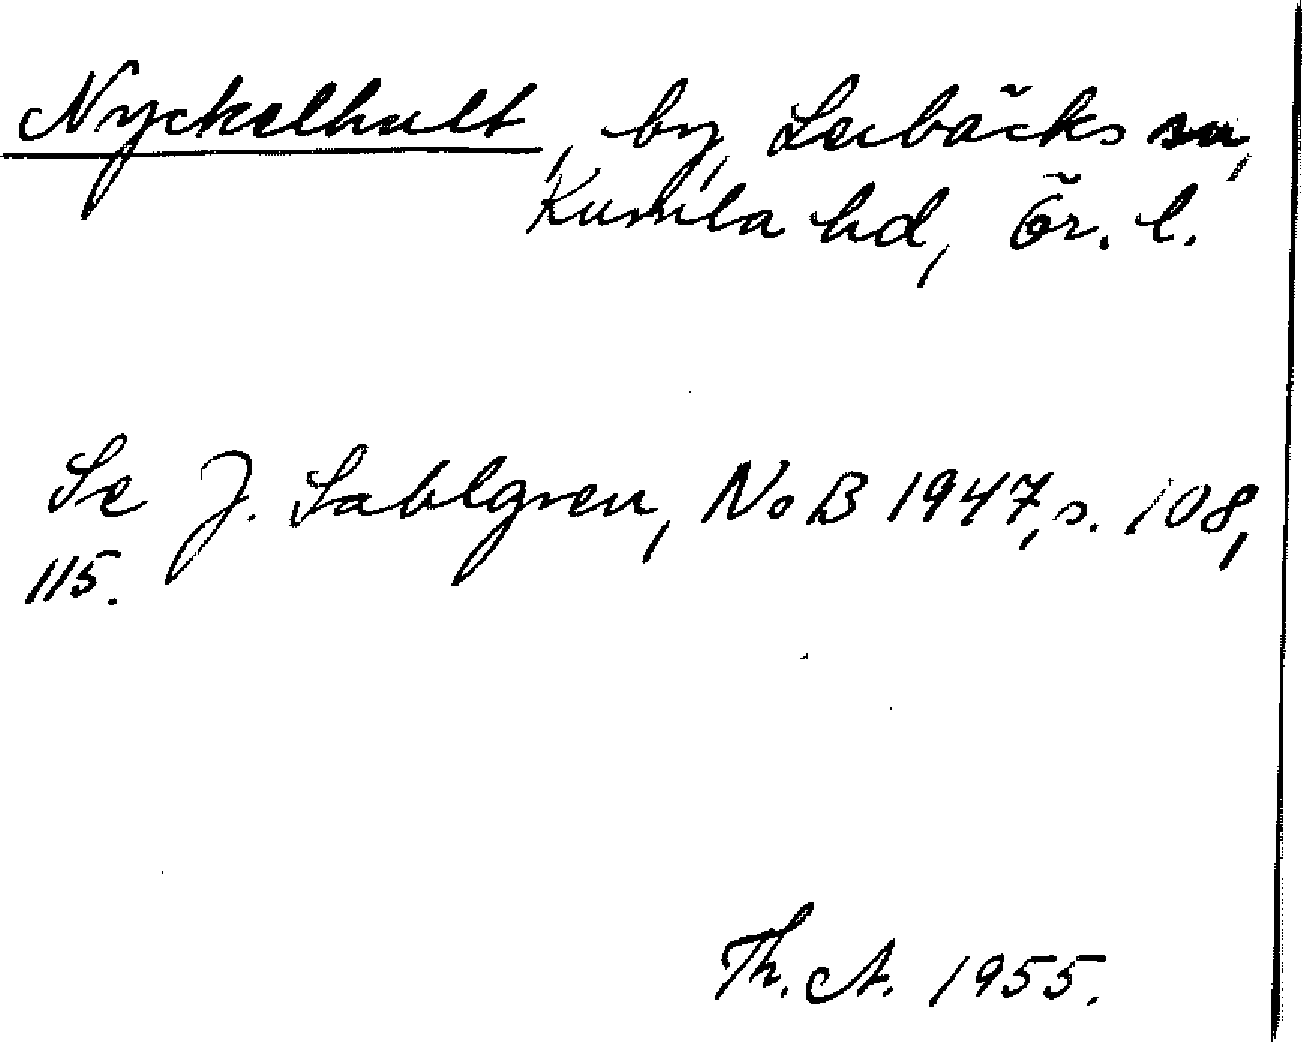 Nyckelhult, by, Lerbäcks sn,
Kumla hd, Ör. l.
Se J. Sahlgren, NoB 1947, s. 108,
115.
Th. A. 1955.